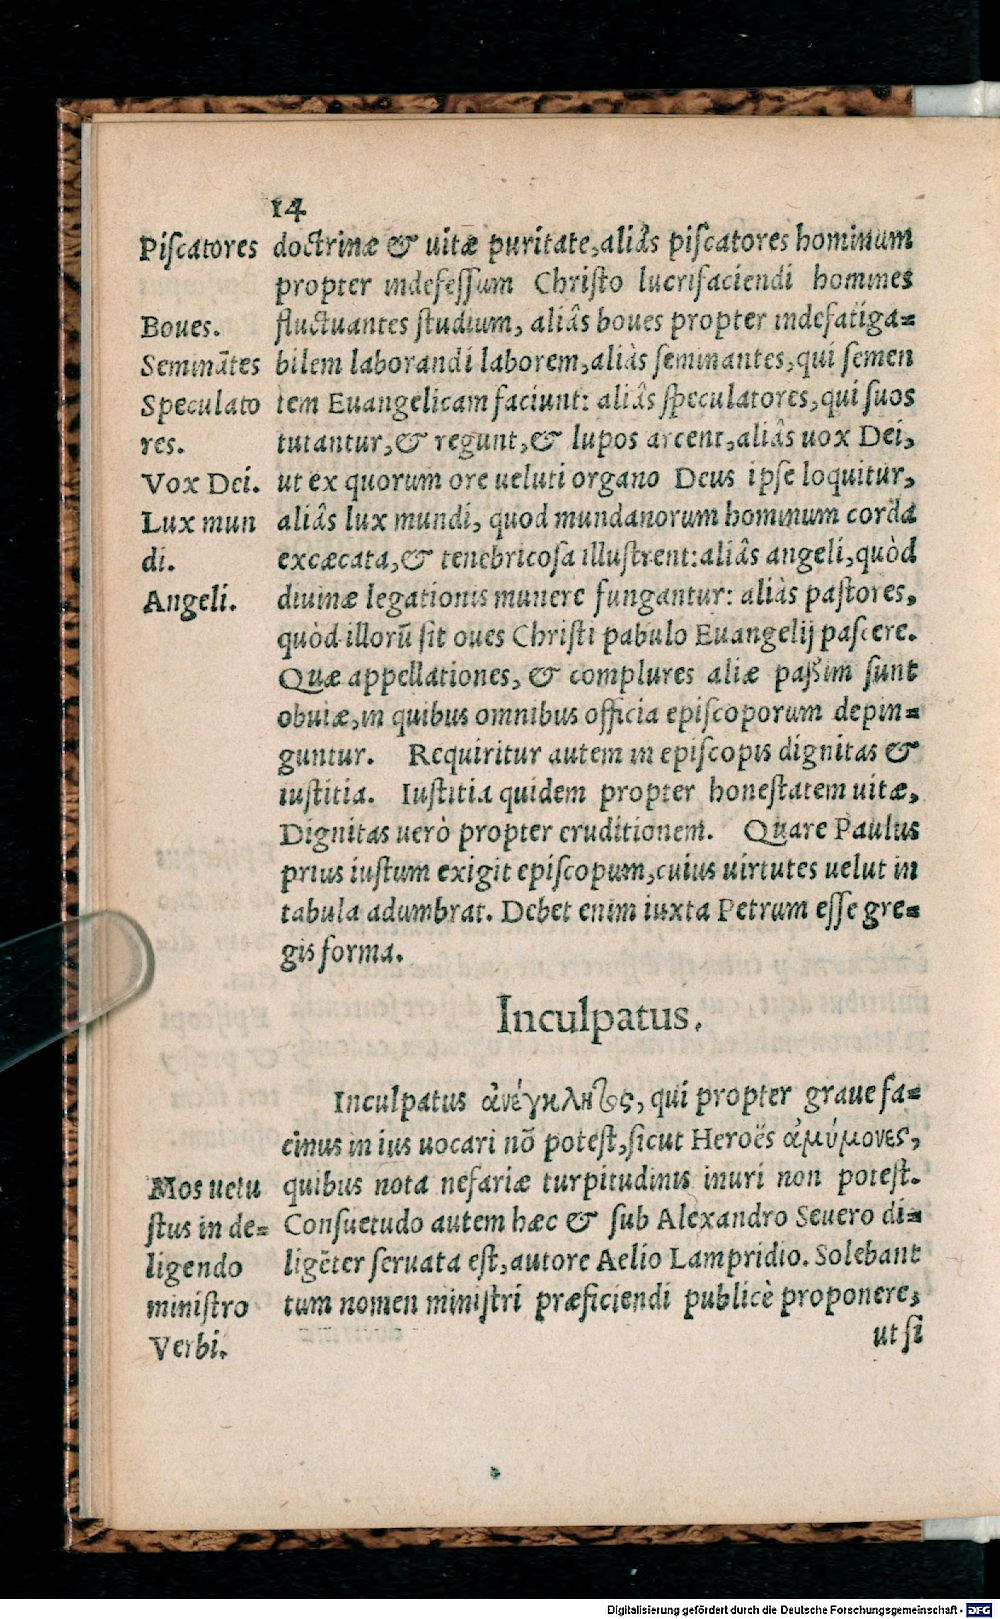 14
Piſcatores doctrinæ & uitæ puritate, aliâs piſcatores hominum
propter indefeſſum Chriſto lucrifaciendi homines
Boues. fluctuantes ſtudium, aliâs boues propter indefatiga=
Seminātes bilem laborandi laborem, aliàs ſeminantes, qui ſemen
Speculato tem Euangelicam faciunt: aliâs ſpeculatores, qui ſuos
res. tutantur, & regunt, & lupos arcent, aliâs uox Dei,
Vox Dei. ut ex quorum ore ueluti organo Deus ipſe loquitur,
Lux mun aliâs lux mundi, quod mundanorum hominum corda
di. excæcata, & tenebricoſa illuſtrent: aliâs angeli, quòd
Angeli. diuinæ legationis munere fungantur: aliàs paſtores,
quòd illorū ſit oues Chriſti pabulo Euangelij paſcere.
Quæ appellationes, & complures aliæ paßim ſunt
obuiæ, in quibus omnibus officia epiſcoporum depin=
guntur. Requiritur autem in epiſcopis dignitas &
iuſtitia. Iuſtitia quidem propter honeſtatem uitæ,
Dignitas uerò propter eruditionem. Quare Paulus
prius iuſtum exigit epiſcopum, cuius uirtutes uelut in
tabula adumbrat. Debet enim iuxta Petrum eſſe gre=
gis forma.
Inculpatus.
Inculpatus ἀνέγκλητος, qui propter graue fa=
cinus in ius uocari nō poteſt, ſicut Heroës ἀμύμονες,
Mos uetu quibus nota nefariæ turpitudinis inuri non poteſt.
ſtus in de= Conſuetudo autem hæc & ſub Alexandro Seuero di=
ligendo ligēter ſeruata eſt, autore Aelio Lampridio. Solebant
miniſtro tum nomen miniſtri præficiendi publicè proponere,
Verbi. ut ſi
Digitalisierung gefördert durch die Deutsche Forschungsgemeinschaft - DFG